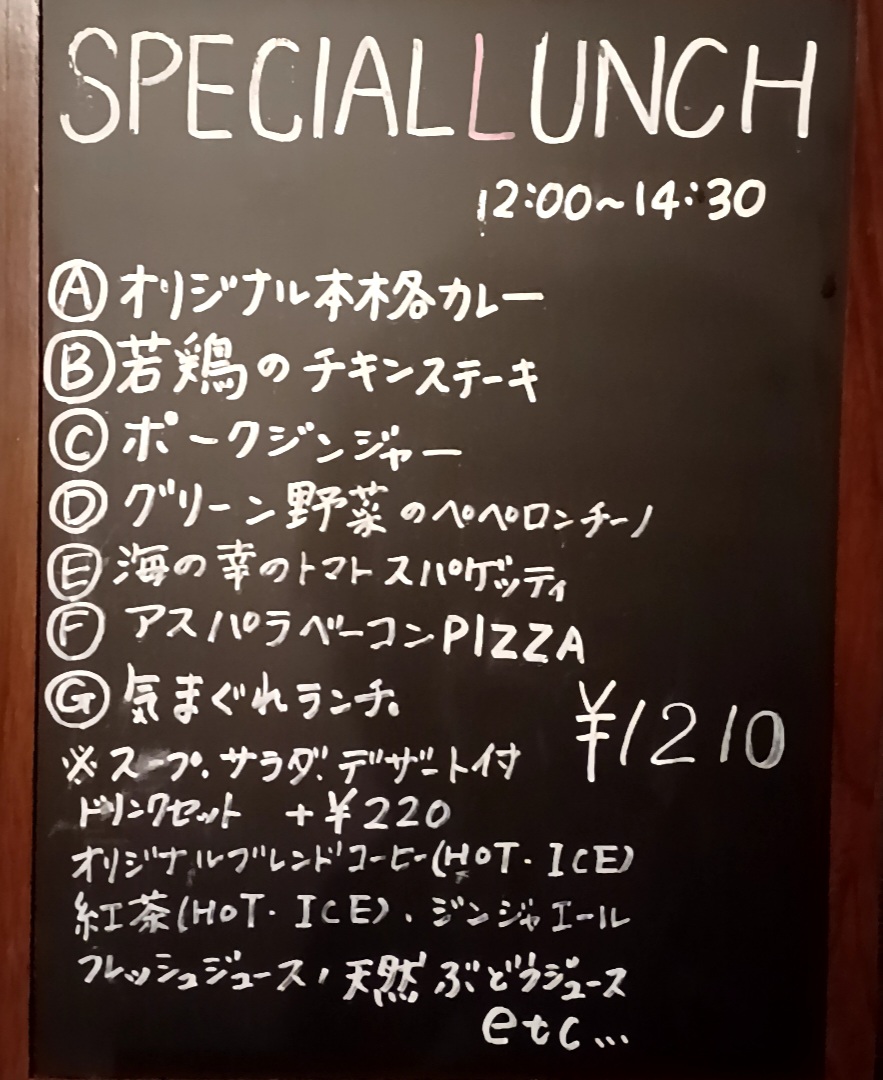 SPECIAL LUNCH
12:00~14:30
Ⓐオリジナル本格カレー
Ⓑ若鶏のチキンステーキ
Ⓒポークジンジャー
Ⓓグリーン野菜のペペロンチーノ
Ⓔ海の幸のトマトスパゲッティ
ⒻアスパラベーコンPIZZA
Ⓖ気まぐれランチ。
¥1210
※スープ、サラダ、デザート付
ドリンクセット +¥220
オリジナルブレンドコーヒー(HOT・ICE)
紅茶(HOT・ICE)、ジンジャエール
フレッシュジュース、天然ぶどうジュース
etc...